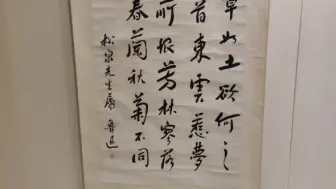 章如土欲何之
首東雲惹夢
所恨芳林寥落
春蘭秋菊不同
松泉先生屬 魯迅